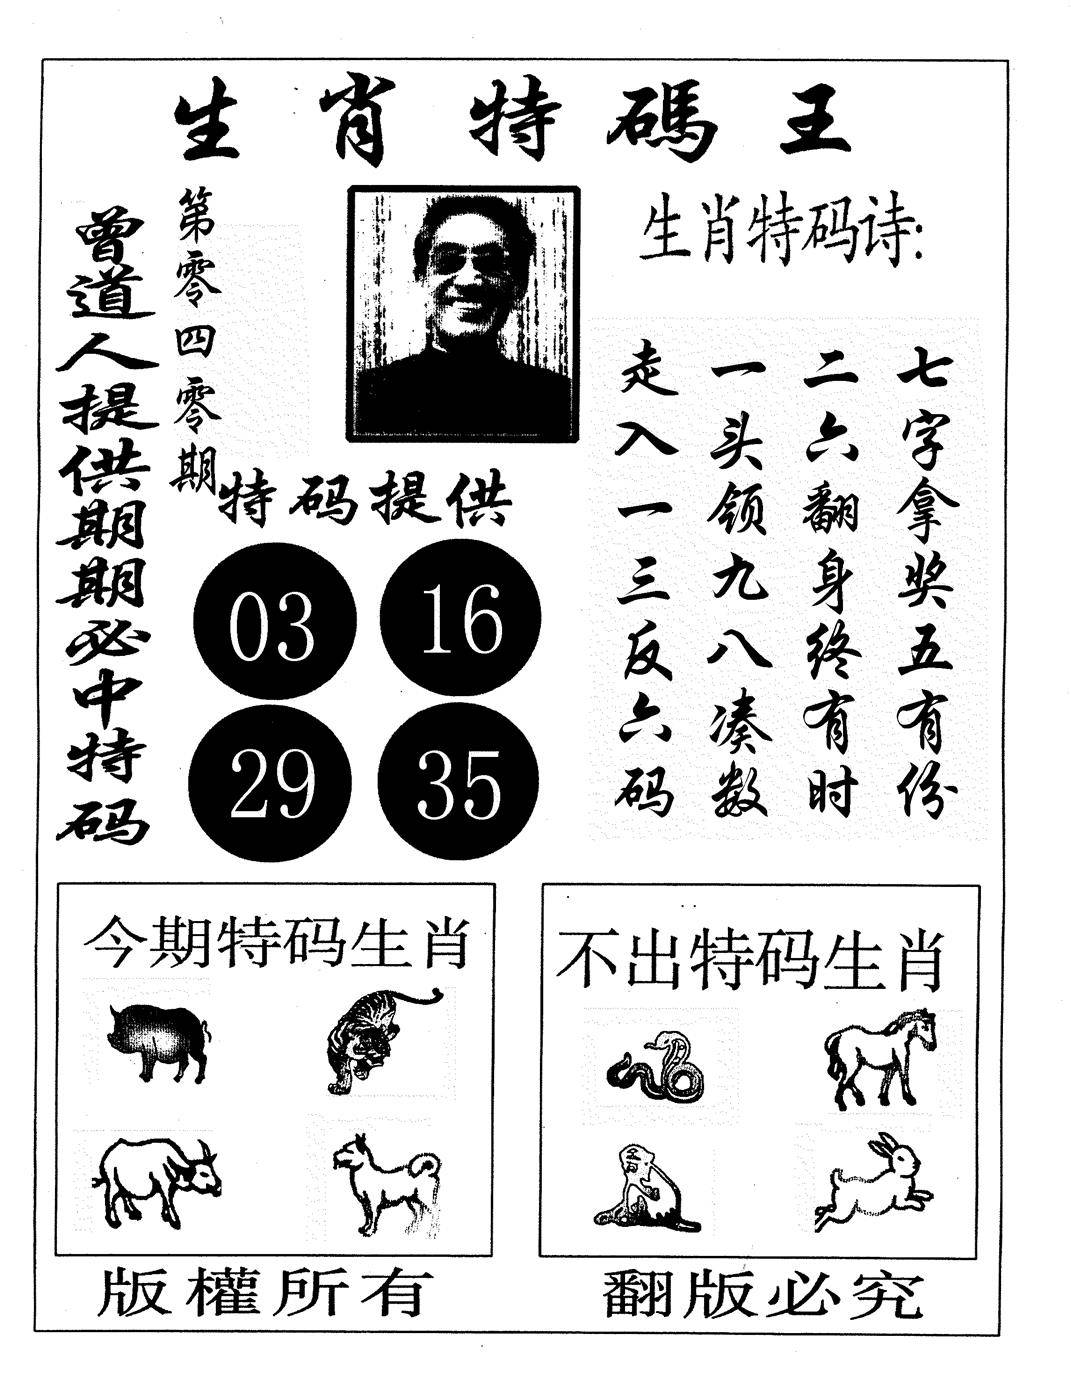 生肖特碼王
曾道人提供期期必中特码
第零四零期
生肖特码诗:
七字拿奖五有份
二六翻身终有时
一头领九八凑数
走入一三反六码
特码提供
03 16
29 35
今期特码生肖
不出特码生肖
版權所有
翻版必究